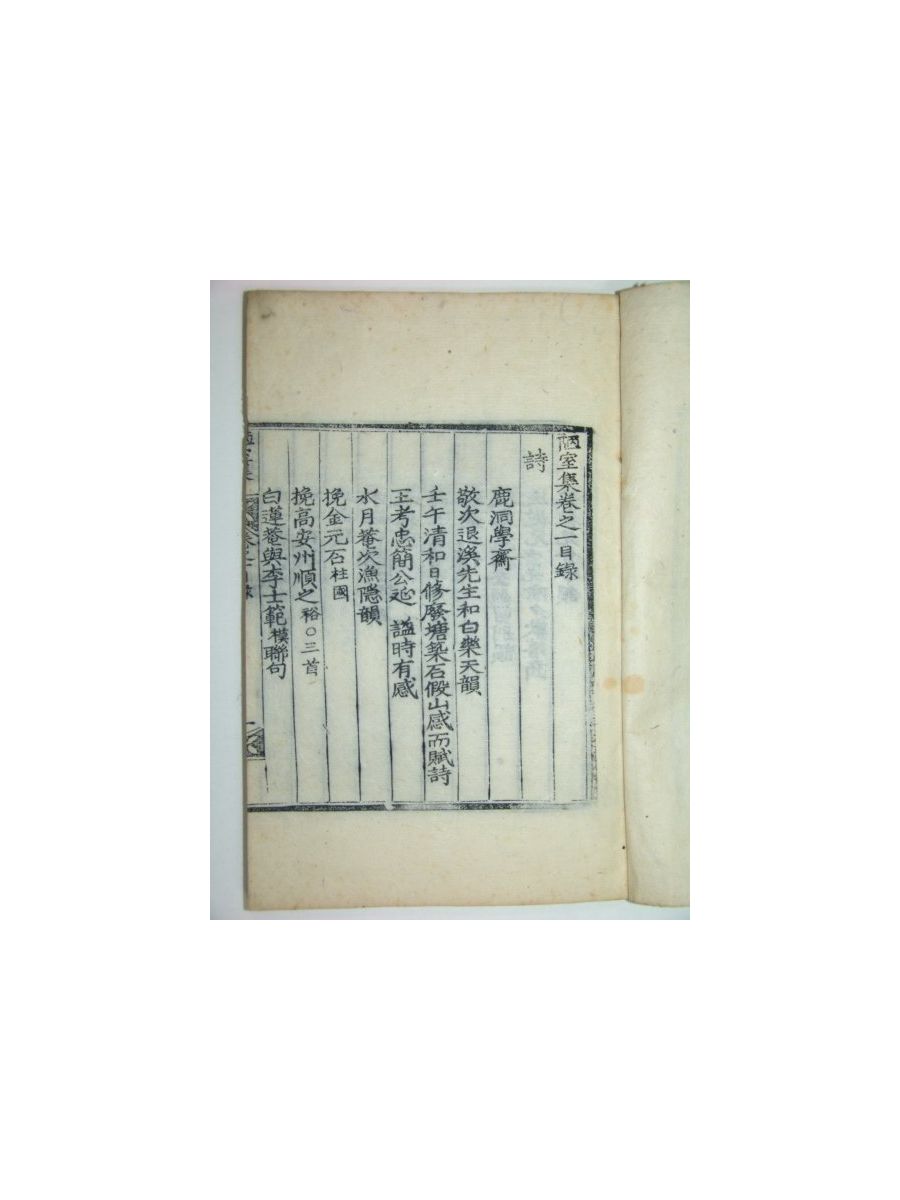 陋室集卷之一目錄
詩
鹿洞學齋
敬次退溪先生和白樂天韻
壬午清和日修廢塘築石假山感而賦詩
王考忠簡公延謚時有感
水月菴次漁隱韻
挽金元石柱國
挽高安州順之裕○三首
白蓮菴與李士範模聯句